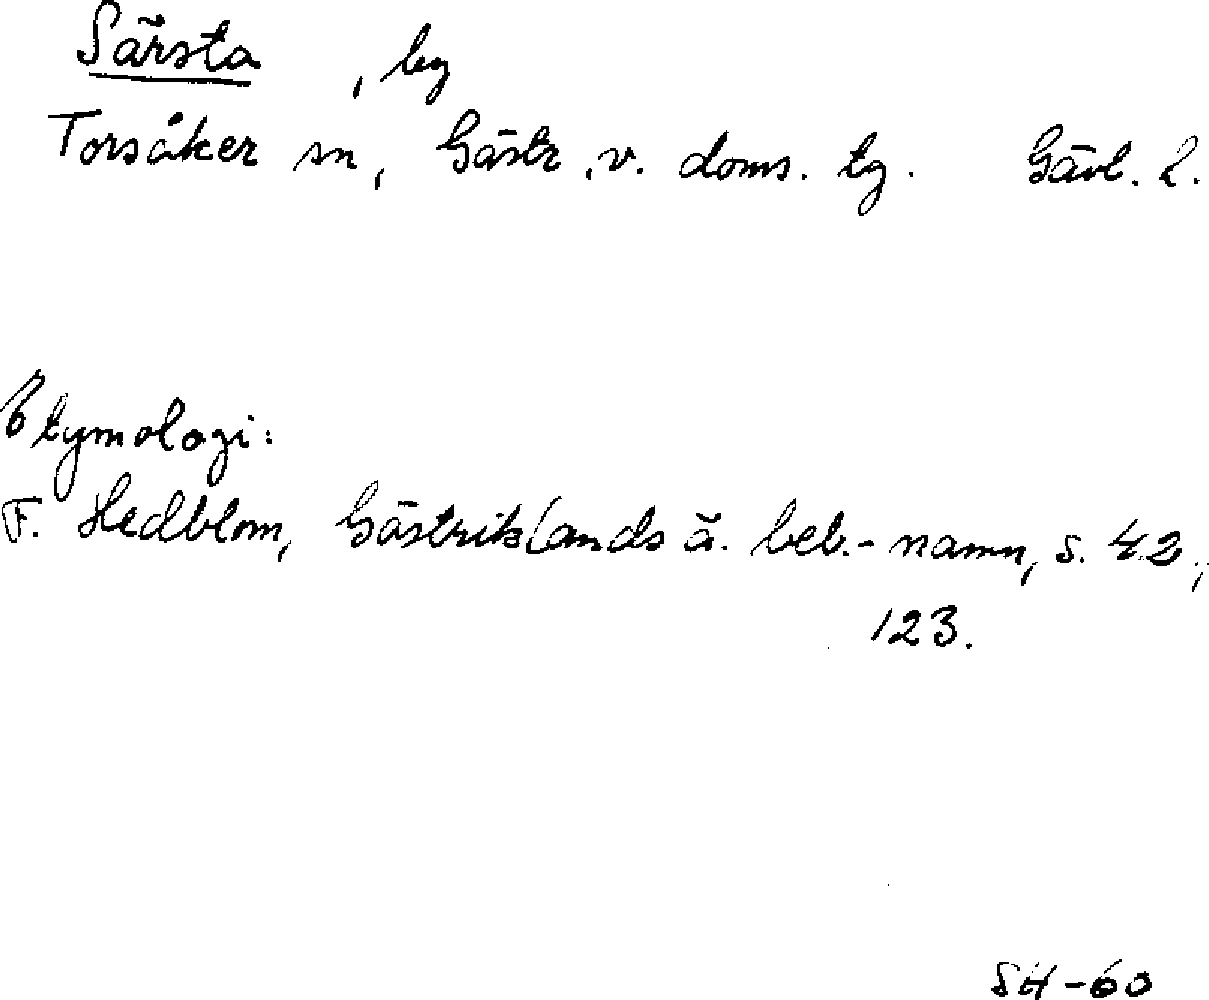 Särsta , by
Torsåker sn, Gästr. v. doms. tg. Gävl. l.
Etymologi:
F. Hedblom, Gästriklands ä. beb.-namn, s. 42,
123.
SH-60